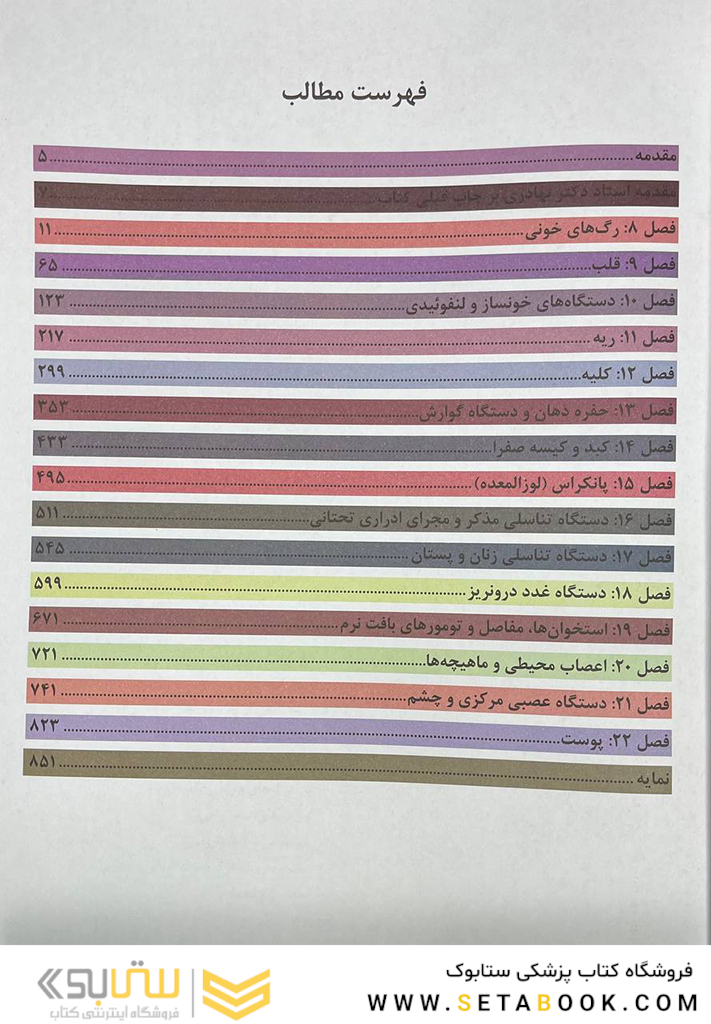 فهرست مطالب
مقدمه ..... ۵
مقدمه استاد دکتر بهادری بر چاپ قبلی کتاب ..... ۷
فصل ۸: رگ‌های خونی ..... ۱۱
فصل ۹: قلب ..... ۶۵
فصل ۱۰: دستگاه‌های خونساز و لنفوئیدی ..... ۱۲۳
فصل ۱۱: ریه ..... ۲۱۷
فصل ۱۲: کلیه ..... ۲۹۹
فصل ۱۳: حفره دهان و دستگاه گوارش ..... ۳۵۳
فصل ۱۴: کبد و کیسه صفرا ..... ۴۳۳
فصل ۱۵: پانکراس (لوزالمعده) ..... ۴۹۵
فصل ۱۶: دستگاه تناسلی مذکر و مجرای ادراری تحتانی ..... ۵۱۱
فصل ۱۷: دستگاه تناسلی زنان و پستان ..... ۵۴۵
فصل ۱۸: دستگاه غدد درون‌ریز ..... ۵۹۹
فصل ۱۹: استخوان‌ها، مفاصل و تومورهای بافت نرم ..... ۶۷۱
فصل ۲۰: اعصاب محیطی و ماهیچه‌ها ..... ۷۲۱
فصل ۲۱: دستگاه عصبی مرکزی و چشم ..... ۷۴۱
فصل ۲۲: پوست ..... ۸۲۳
نمایه ..... ۸۵۱
فروشگاه کتاب پزشکی ستابوک
WWW.SETABOOK.COM
ستابوک
فروشگاه اینترنتی کتاب